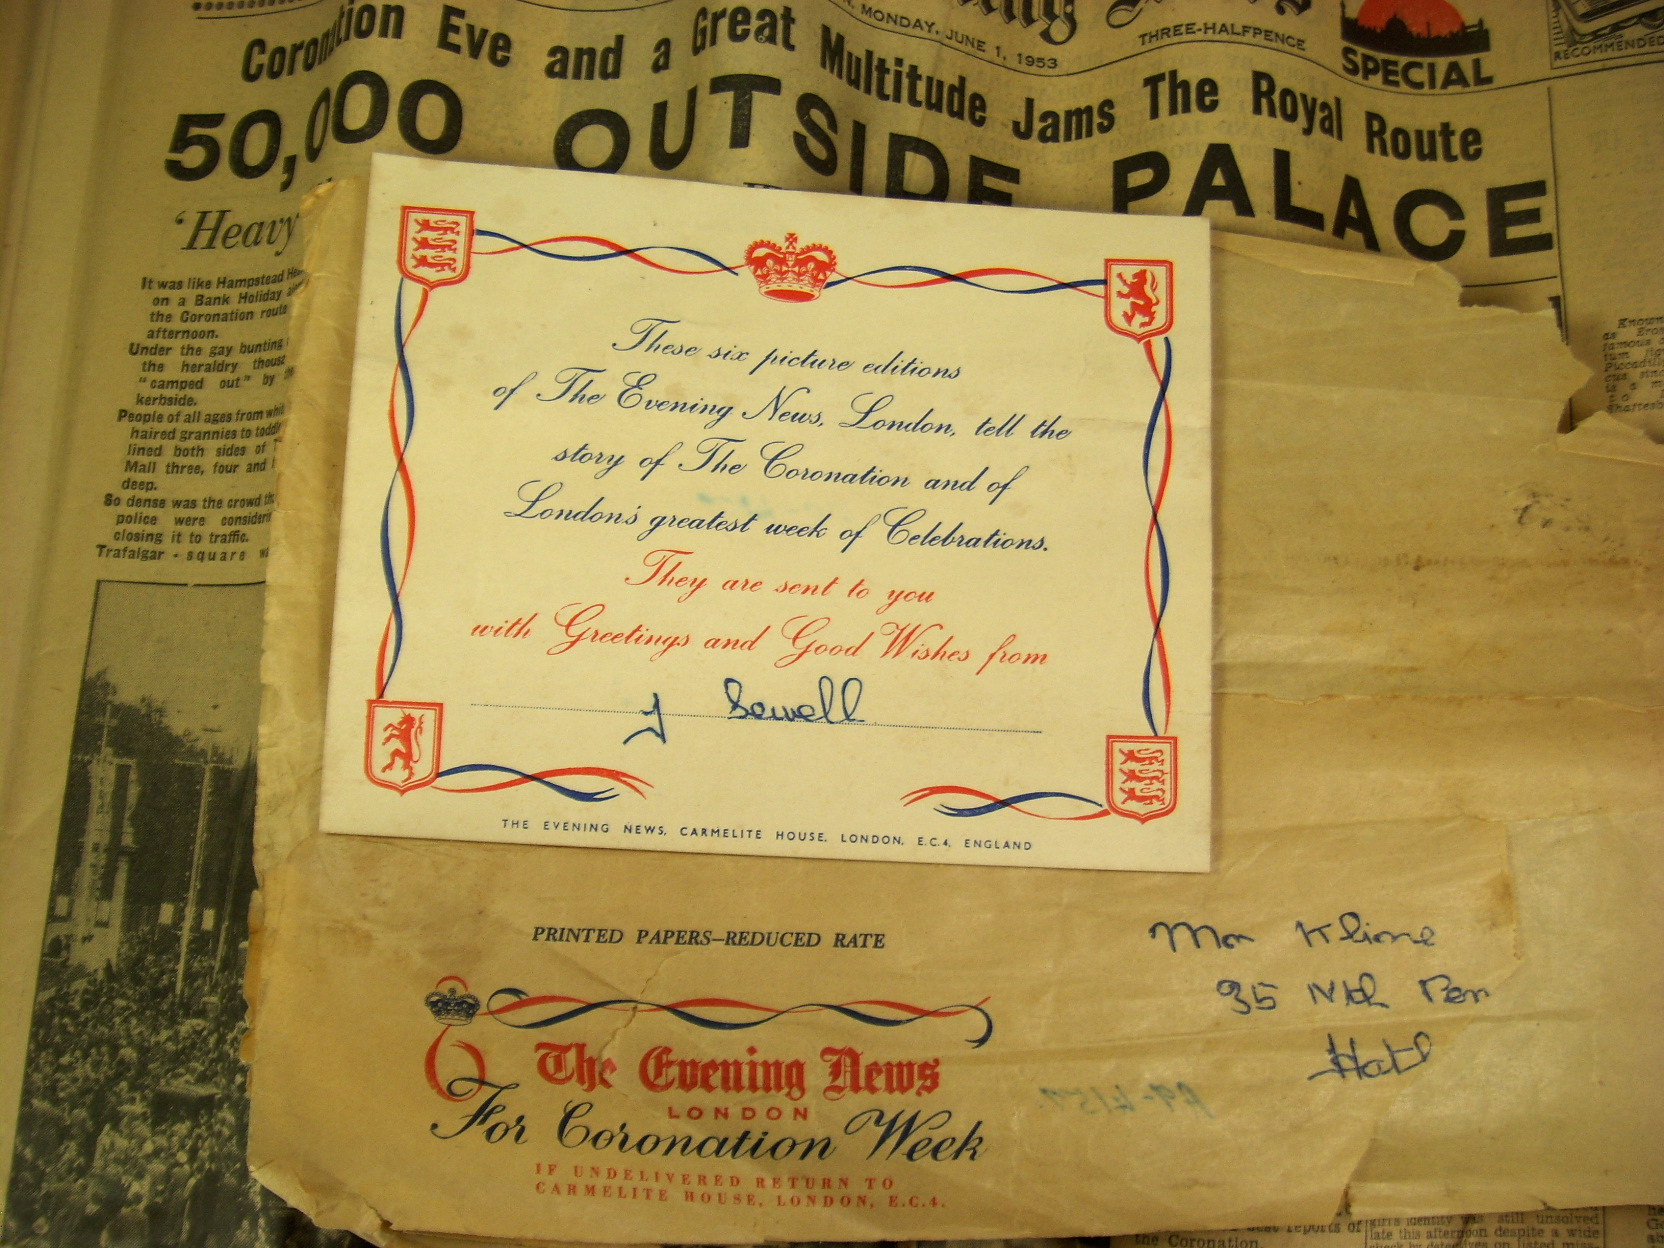 MONDAY, JUNE 1, 1953
THREE-HALFPENCE
SPECIAL
RECOMMENDED
Coronation Eve and a Great Multitude Jams The Royal Route
50,000 OUTSIDE PALACE
'Heavy
It was like Hampstead
on a Bank Holiday
the Coronation route
afternoon.
Under the gay bunting
the heraldry
"camped out" by
kerbside.
People of all ages from
haired grannies to
lined both sides of
Mall three, four and
deep.
So dense was the crowd
police were
closing it to traffic.
Trafalgar - square
These six picture editions
of The Evening News, London, tell the
story of The Coronation and of
London's greatest week of Celebrations.
They are sent to you
with Greetings and Good Wishes from
J Sewell
THE EVENING NEWS, CARMELITE HOUSE, LONDON, E.C.4, ENGLAND
PRINTED PAPERS–REDUCED RATE
6 The Evening News
LONDON
For Coronation Week
IF UNDELIVERED RETURN TO
CARMELITE HOUSE, LONDON, E.C.4.
35
Known
as
famous
Piccadilly
is a
reports of
the Coronation
girl's identity was still unsolved
late this afternoon despite a wide